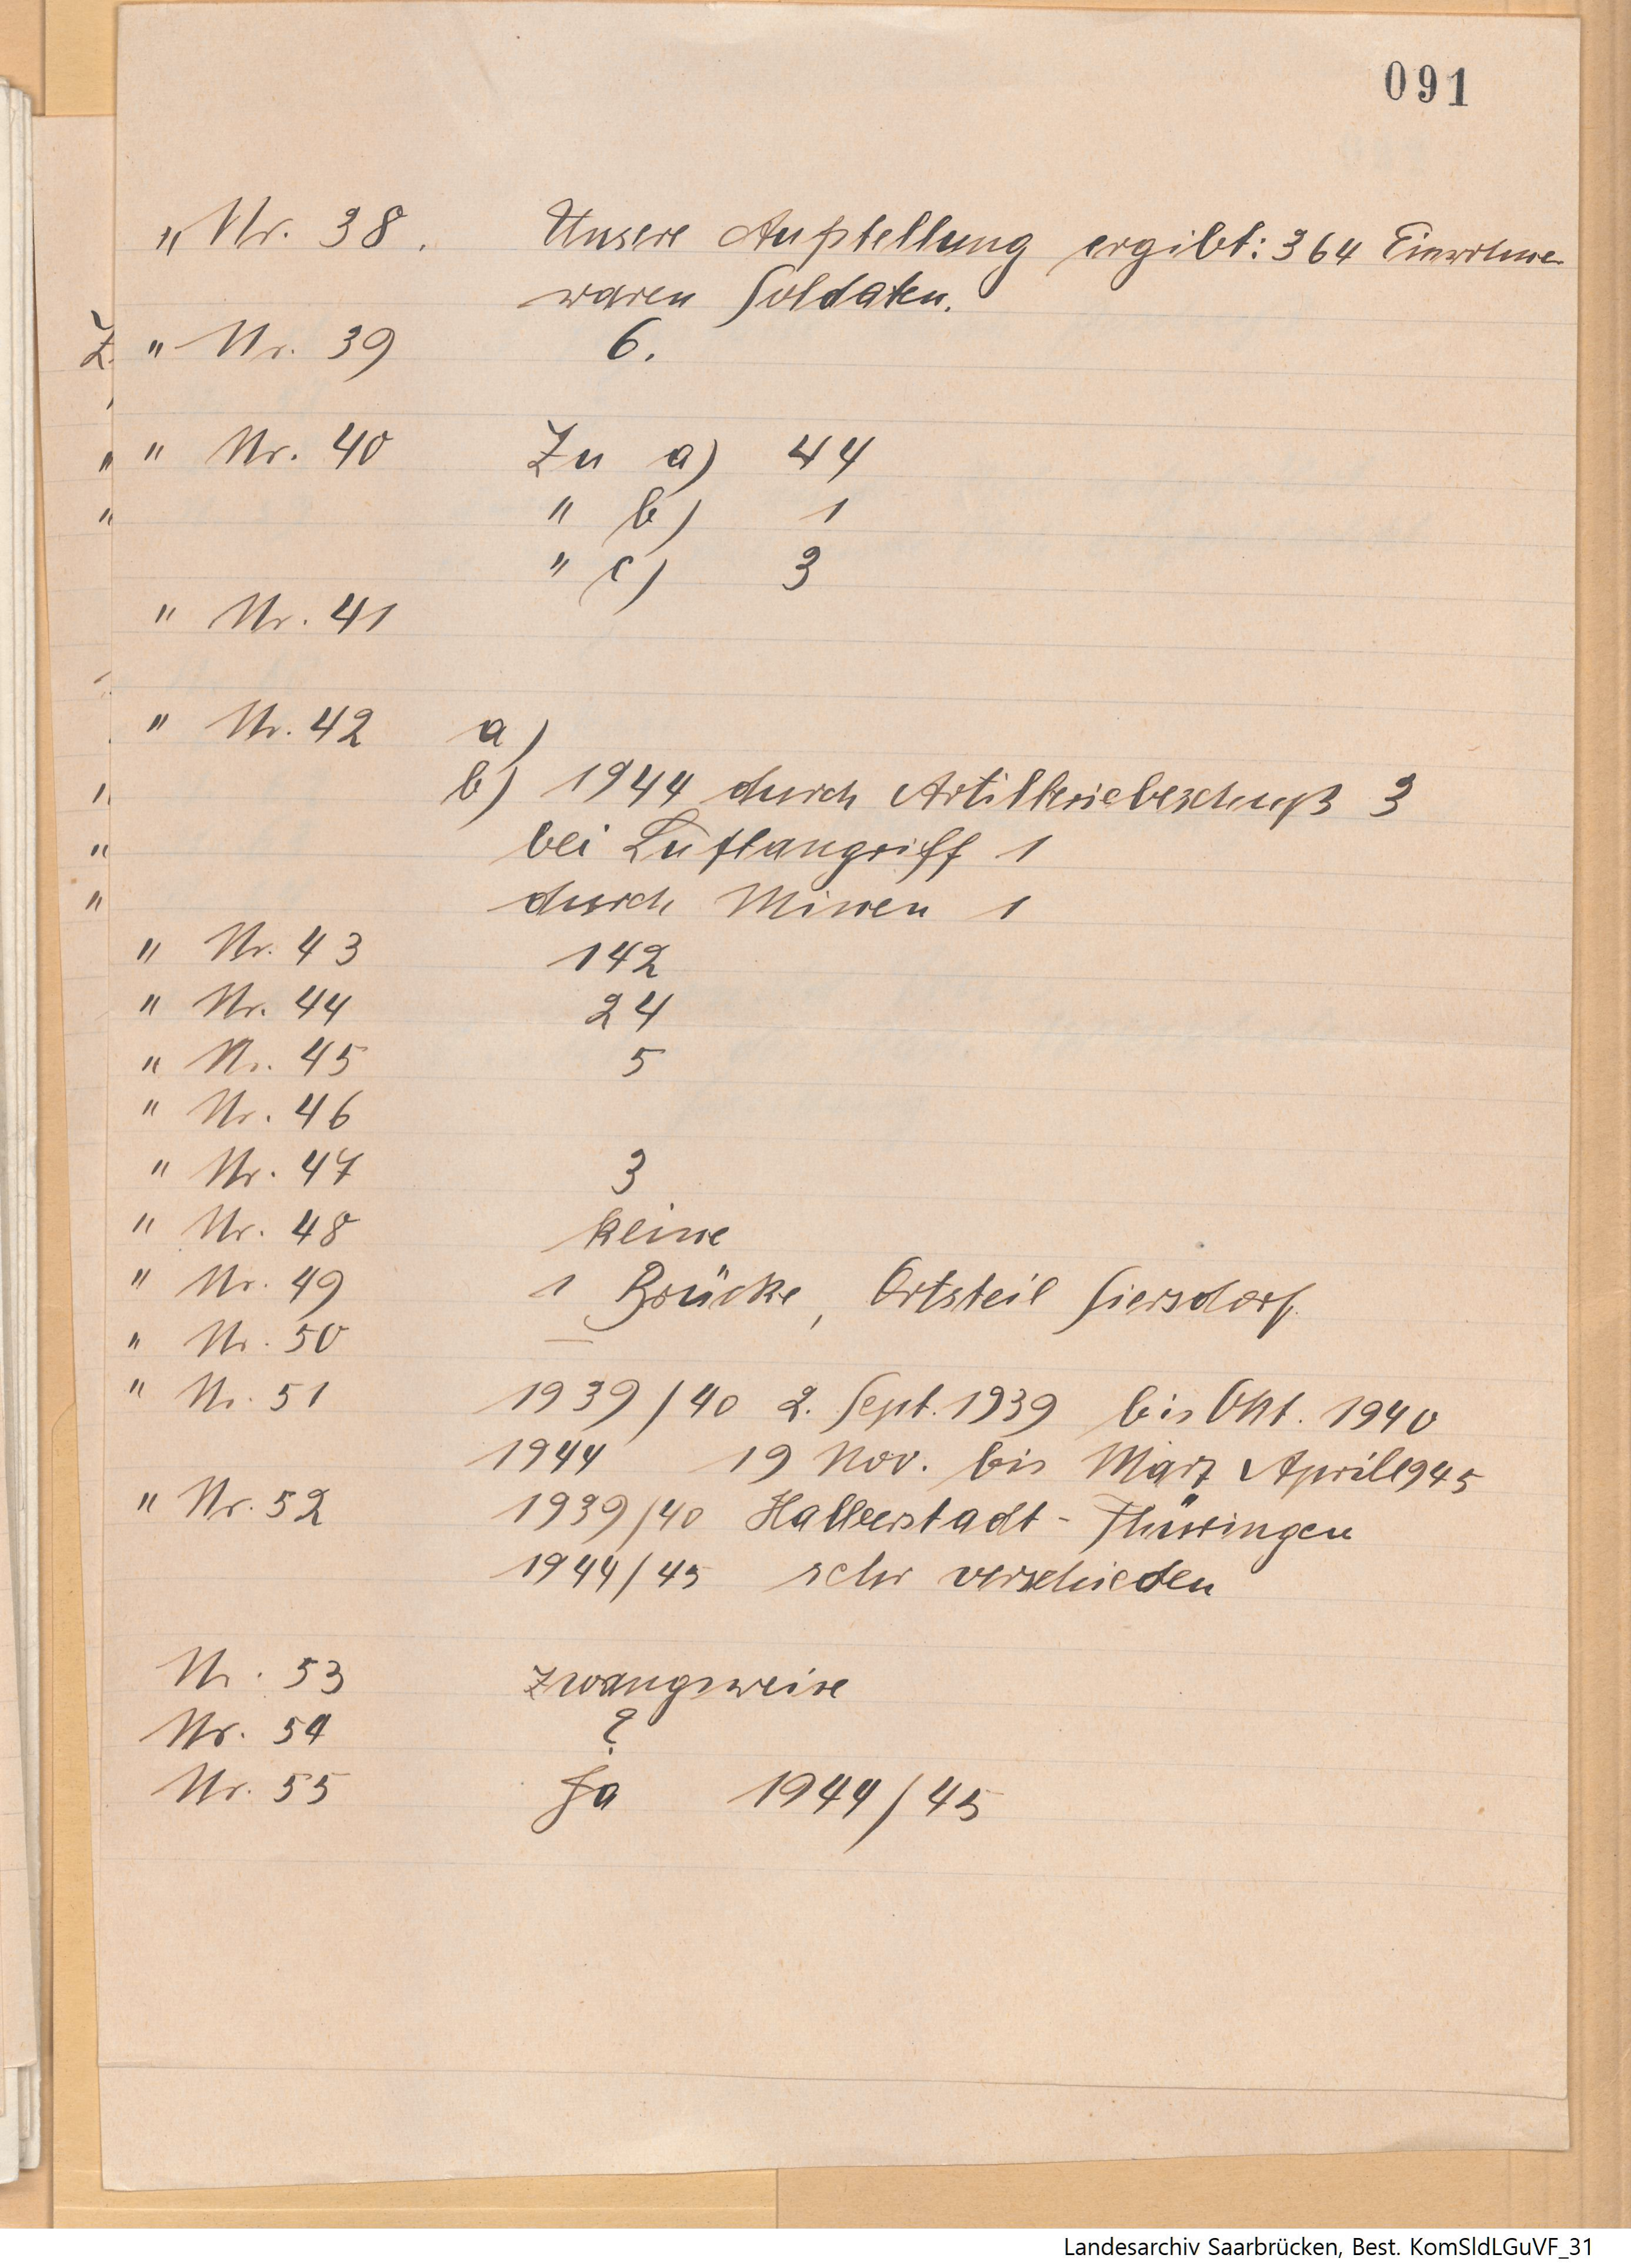 091
" Nr. 38. Unsere Aufstellung ergibt: 364 Einwohner
waren Soldaten.
Z. " Nr. 39 6.
" " Nr. 40 Zu a) 44
" " b) 1
" c) 3
" Nr. 41
" Nr. 42 a)
" b) 1944 durch Artilleriebeschuß 3
" bei Luftangriff 1
" durch Minen 1
" Nr. 43 142
" Nr. 44 24
" Nr. 45 5
" Nr. 46
" Nr. 47 3
" Nr. 48 keine
" Nr. 49 1 Brücke, Ortsteil Siersdorf.
" Nr. 50 —
" Nr. 51 1939/40 2. Sept. 1939 bis Okt. 1940
1944 19 Nov. bis März April 1945
" Nr. 52 1939/40 Halberstadt - Thüringen
1944/45 sehr verschieden
Nr. 53 zwangsweise
Nr. 54 ?
Nr. 55 Ja 1944/45
Landesarchiv Saarbrücken, Best. KomSldLGuVF_31